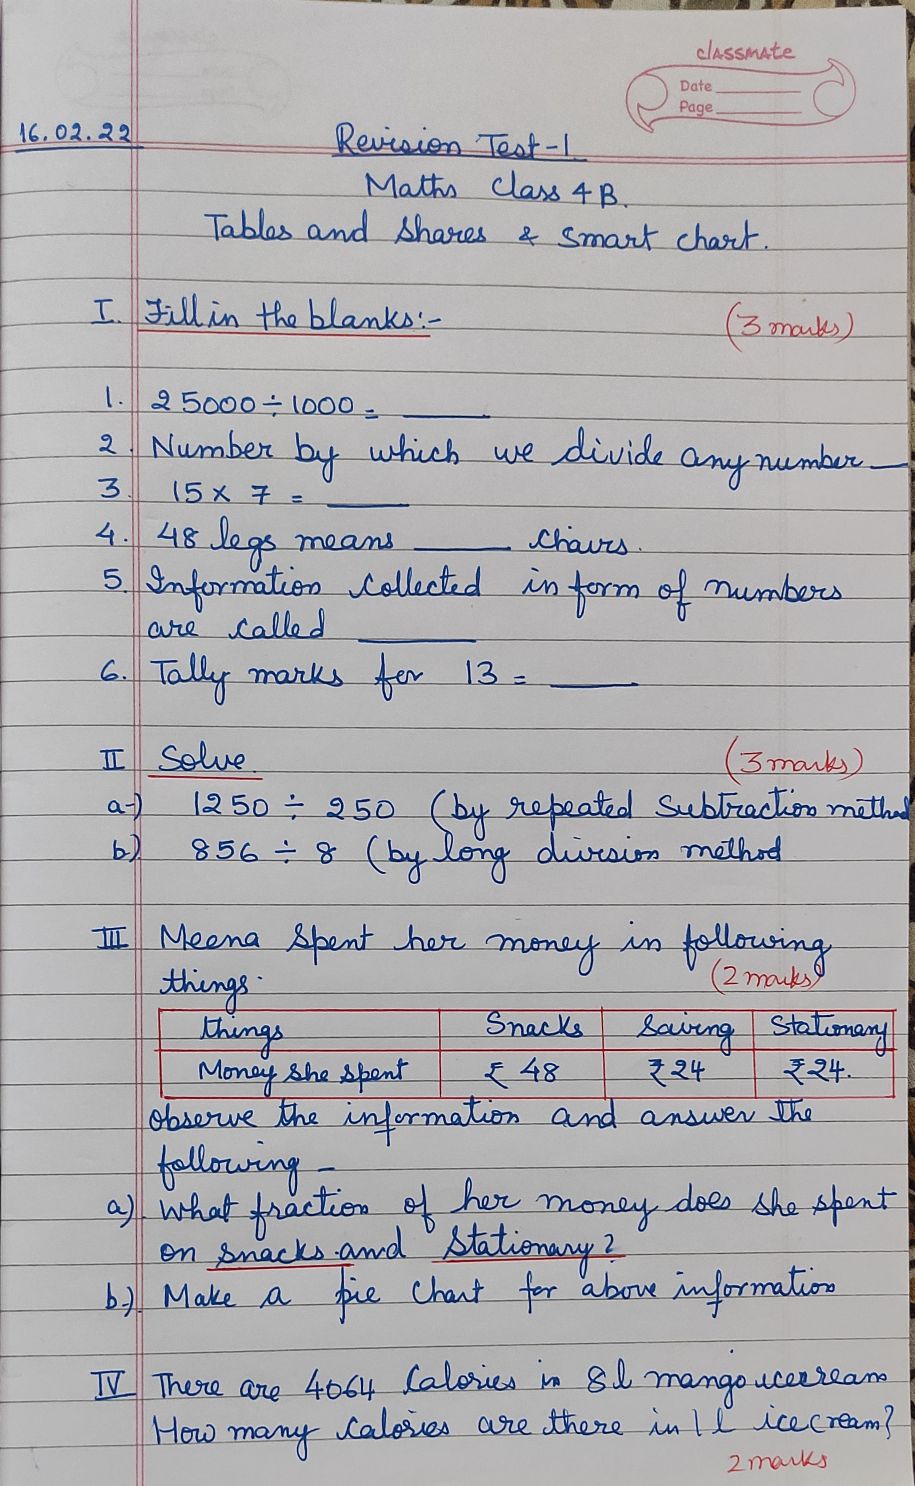 classmate
Date
Page
16.02.22
Revision Test-1
Maths Class 4B.
Tables and Shares & Smart chart.
I. Fill in the blanks:- (3 marks)
1. 25000÷1000= ____
2. Number by which we divide any number ____
3. 15 x 7 = ____
4. 48 legs means ____ chairs.
5. Information collected in form of numbers
are called ____
6. Tally marks for 13 = ____
II Solve. (3 marks)
a-) 1250 ÷ 250 (by repeated Subtraction method
b) 856 ÷ 8 (by long division method
III Meena Spent her money in following
things. (2 marks)
things Snacks Saving Stationary
Money she spent ₹ 48 ₹ 24 ₹ 24.
observe the information and answer the
following -
a) What fraction of her money does she spent
on snacks and Stationary?
b-) Make a pie Chart for above information
IV There are 4064 Calories in 8l mango icecream
How many Calories are there in 1 l icecream?
2 marks